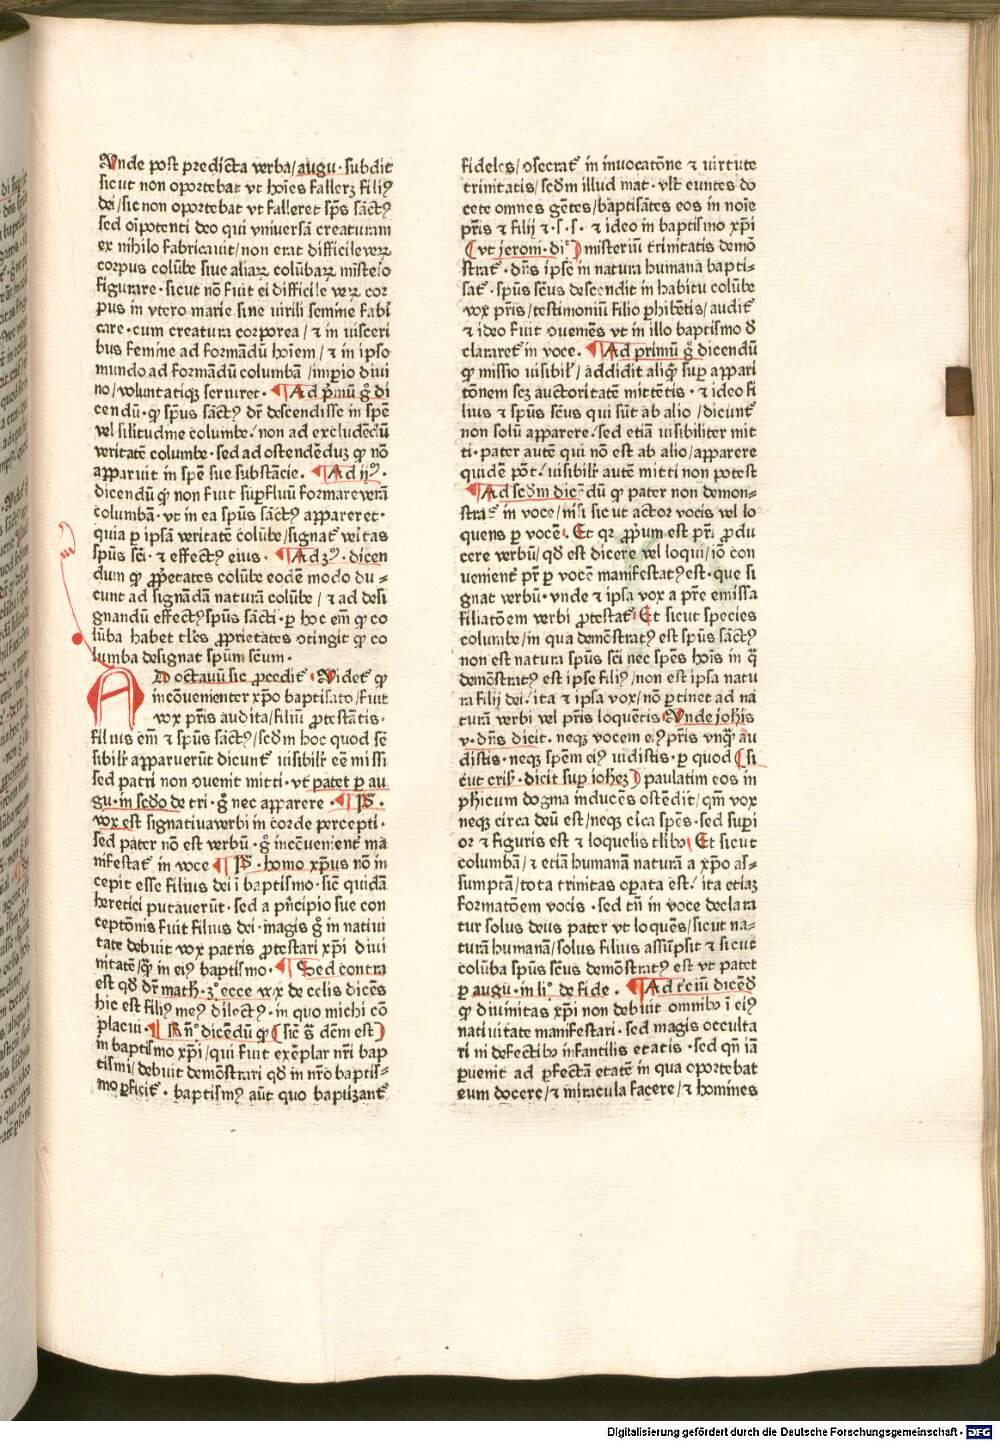 Vnde post predicta verba/augu· subdit
sicut non oportebat vt hoīes fallerꝫ filiꝰ
dei/sic non oportebat vt falleret sp̄s sāctꝰ
sed oīpotenti deo qui vniuersā creaturam
ex nihilo fabricauit/non erat difficile veꝝ
corpus colūbe siue aliaꝝ colūbaꝝ mīsteīo
figurare· sicut nō fuit ei difficile veꝝ cor
pus in vtero marie sine virili semine fabī
care· cum creatura corporea/⁊ in visceri
bus femine ad formādū hoīem/⁊ in ipso
mundo ad formādū columbā/imperio diui
no/voluntatiqꝫ seruiret· Ad p̄mū g̊ di
cendū· ꝙ sp̄us sāctꝰ dr̄ descendisse in spē
vel silitudīne columbe/non ad excludēdū
veritatē columbe· sed ad ostendēduꝫ ꝙ nō
apparuit in spē sue substācie. Ad ijꝰ·
dicendū ꝙ non fuit suꝑfluū formare verā
columbā· vt in ea sp̄us sāctꝰ appareret·
quia ꝑ ipsā veritatē colūbe/signat᷑ veītas
sp̄us sc̄i· ⁊ effectꝰ eius· Ad 3ꝰ· dicen
dum ꝙ ꝓp̄etates colūbe eodē modo du⸗
cunt ad signādā naturā colūbe/⁊ ad desi
gnandū effectꝰ sp̄us sācti· ꝑ hoc em̄ ꝙ co
lūba habet tl̄es ꝓprietates ↄtingit ꝙ co
lumba designat sp̄um sc̄um·
AD octauū sic ꝓcedit᷑· Videt᷑ ꝙ
incōuenienter xp̄o baptisato/fuit
vox pr̄is audita/filiū ꝓtestātis·
filius em̄ ⁊ sp̄us sāctꝰ/scd̄m hoc quod sē
sibilr̄ apparuerūt dicunt᷑ visibilr̄ eē missi
sed patri non ↄuenit mitti· vt patet ꝑ au
gu· in sc̄do de tri· g̊ nec apparere· P̄ᵗ·
vox est signatiua verbi in corde percepti·
sed pater nō est verbū· g̊ incōuenient᷑ ma
nifestat᷑ in voce P̄ᵗ· homo xp̄us nō in
cepit esse filius dei ī baptismo· sic̄ quidā
heretici putauerūt· sed a pn̄cipio sue con
ceptōnis fuit filius dei· magis g̊ in natiui
tate debuit vox patris ꝓtestari xp̄i diui
nitatē/ꝗ̄ in eiꝰ baptismo· Sed contra
est qd̄ dr̄ math· 3· ecce vox de celis dicēs
hic est filiꝰ meꝰ dilectꝰ· in quo michi cō
placui· Rn̄º dicēdū ꝙ (sic̄ s̄ dc̄m est)
in baptismo xp̄i/qui fuit exēplar nr̄i bap
tismi/debuit demōstrari qd̄ in nr̄o baptis⸗
mo ꝑficit᷑· baptismꝰ aūt quo baptizant᷑
fideles/ↄsecrat᷑ in inuocatōne ⁊ virtute
trinitatis/scd̄m illud mat· vlt̄ euntes do
cete omnes gētes/baptisātes eos in noīe
pr̄is ⁊ filij ⁊·s·s· ⁊ ideo in baptismo xp̄i
(vt jeroni· di᷑) misteriū trinitatis demō
strat᷑· dn̄s ipse in natura humana bapti⸗
sat᷑· sp̄us sc̄us descendit in habitu colūbe
vox pr̄is/testimoniū filio ꝓhibētis/audit᷑
⁊ ideo fuit ↄueniēs vt in illo baptismo d̄
claret᷑ in voce. Ad primū g̊ dicendū
ꝙ missio visibil̄/addidit aliꝙ suꝑ appari
tōnem scꝫ auctoritatē mittētis· ⁊ ideo fi
lius ⁊ sp̄us sc̄us qui sūt ab alio/dicunt᷑
non solū apparere/sed etiā visibiliter mit
ti· pater autē qui nō est ab alio/apparere
quidē pōt/visibilr̄ autē mitti non potest
Ad scd̄m dicēdū ꝙ pater non demon⸗
strat᷑ in voce/nisi sicut actor vocis vel lo
quens ꝑ vocē· Et qꝛ ꝓp̄um est pr̄i ꝓdu
cere verbū/qd̄ est dicere vel loqui/iō con
uenient᷑ pr̄ ꝑ vocē manifestatꝰ est· que si
gnat verbū· vnde ⁊ ipsa vox a pr̄e emissa
filiatōem verbi ꝓtestat᷑· Et sicut species
columbe/in qua demōstratꝰ est sp̄us sāctꝰ
non est natura sp̄us sc̄i nec spēs hoīs in ꝗ̄
demōstratꝰ est ipse filiꝰ/non est ipsa natu
ra filij dei/ita ⁊ ipsa vox/nō ꝑtinet ad na
turā verbi vel pr̄is loquētis Vnde joh̄is
v· dn̄s dicit· neqꝫ vocem eiꝰ pr̄is vnꝗ̄ au
distis· neqꝫ spēm eiꝰ vidistis· ꝑ quod (si
cut cris̄· dicit suꝑ johē) paulatim eos in
ph̄icum dogma inducēs ostēdit/qm̄ vox
neqꝫ circa deū est/neqꝫ cīca spēs· sed suꝑi
or ⁊ figuris est ⁊ loquelis tlībꝰ Et sicut
columbā/⁊ etiā humanā naturā a xp̄o as⸗
sumptā/tota trinitas oꝑata est/ita etiaꝫ
formatōem vocis· sed tn̄ in voce declara
tur solus deus pater vt loquēs/sicut na⸗
turā humanā/solus filius assūpsit ⁊ sicut
colūba sp̄us sc̄us demōstratꝰ est vt patet
ꝑ augu· in liº· de fide· Ad tc̄iū dicēd̄
ꝙ diuinitas xp̄i non debuit omnibꝰ ī eiꝰ
natiuitate manifestari· sed magis occulta
ri in defectibꝰ infantilis etatis· sed qn̄ iā
ꝑuenit ad ꝑfectā etatē in qua oportebat
eum docere/⁊ miracula facere/⁊ homines
Digitalisierung gefördert durch die Deutsche Forschungsgemeinschaft - DFG